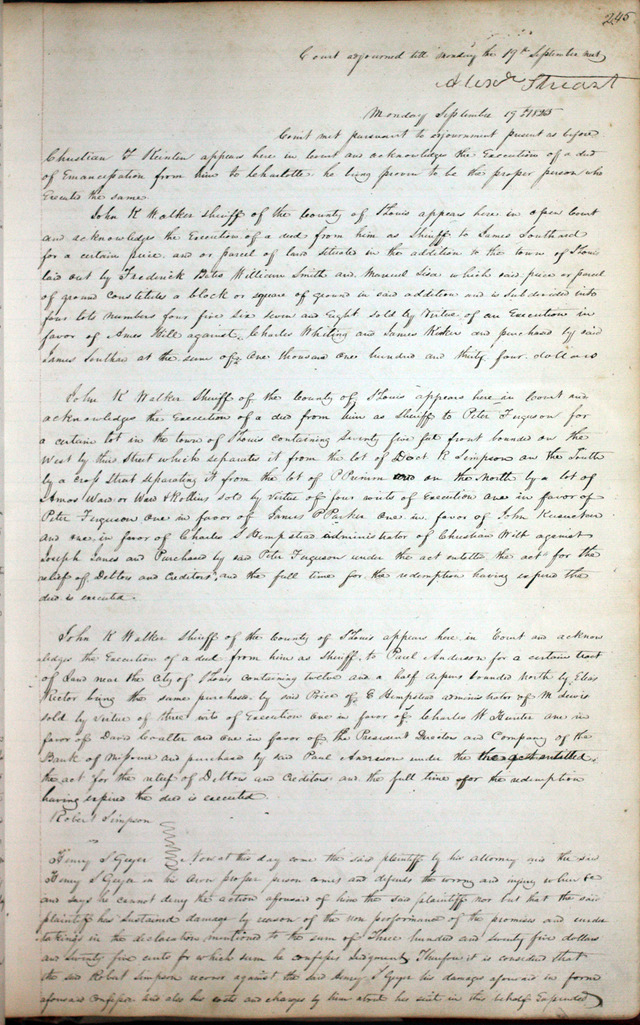 245
Court adjourned till Monday the 19th September next
Alexr Stuart
Monday September 19th 1825
Court met pursuant to adjournment present as before
Christian F appears here in Court and acknowledges the Execution of a deed
of Emancipation from him to Charlotte he being proven to be the proper person who
Executed the same
John K Walker Sheriff of the County of St Louis appears here in open Court
and acknowledges the Execution of a deed from him as Sheriff to James Southard
for a certain peice and or parcel of land situated in the addition to the town of St Louis
laid out by Frederick Bates William Smith and Manuel Lisa which said peice or parcel
of ground constitutes a block or square of ground in said addition and is Subdivided into
four lots numbers four five six seven and Eight sold by Virtue of an Execution in
favor of Amos Hill against Charles Whiting and James and purchased by said
James Southard at the sum of One thousand one hundred and thirty four dollars
John K Walker Sheriff of the County of St Louis appears here in Court and
acknowledges the Execution of a deed from him as Sheriff to Peter Ferguson for
a certain lot in the town of St Louis containing Seventy five feet front bounded on the
West by third Street which separates it from the lot of Doct R Simpson on the South
by a cross Street separating it from the lot of P Primm and on the North by a lot of
Amos Ward or Ward & Rollins sold by Virtue of four writs of Execution one in favor of
Peter Ferguson one in favor of James P Parker one in favor of John
and one in favor of Charles S Hempstead administrator of Christian Wilt against
Joseph Jones and Purchased by said Peter Ferguson under the act entitled the act for the
relief of Debtors and Creditors, and the full time for the redemption having expired the
deed is executed.
John K Walker Sheriff of the County of St Louis appears here in Court and acknow
ledges the Execution of a deed from him as Sheriff to Paul Anderson for a certain tract
of Land near the City of St Louis containing twelve and a half arpens bounded north by Elias
Rector being the same purchased by said Price of E Hempstead administrator of M Lewis
sold by Virtue of three writs of Execution one in favor of Charles W Hunter one in
favor of David Coulter and one in favor of the President Directors and Company of the
Bank of Missouri and purchased by said Paul Anderson under the the act entitled
the act for the relief of Debtors and Creditors and the full time for the redemption
having expired the deed is executed
Robert Simpson
Henry S Geyer Now at this day come the said plaintiff by his attorney and the said
Henry S Geyer in his own proper person comes and defends the wrong and injury when &c
and says he cannot deny the action aforesaid of him the said plaintiff nor but that the said
plaintiff has Sustained damage by reason of the non performance of the promises and under
takings in the declaration mentioned to the sum of Three hundred and seventy five dollars
and Seventy five cents for which sum he confesses Judgment Therefore it is considered that
the said Robert Simpson recover against the said Henry S Geyer his damages aforesaid in form
aforesaid confessed and also his costs and charges by him about his suit in this behalf Expended